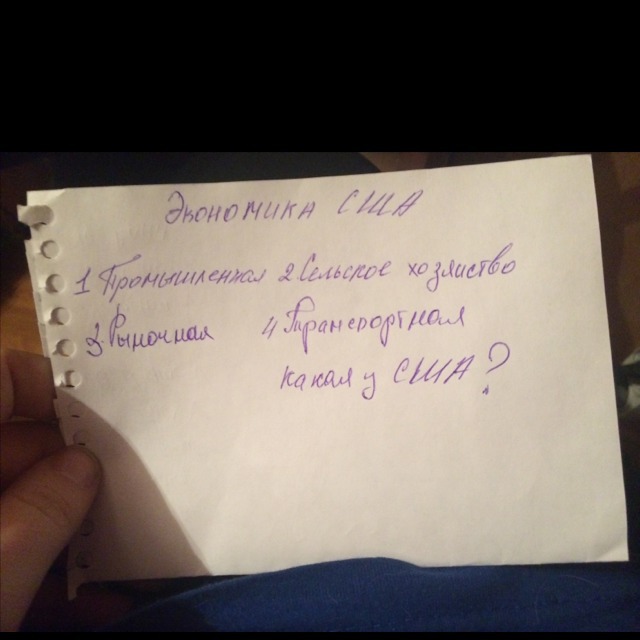 Экономика США
1 Промышленная 2 Сельское хозяйство
3 Рыночная 4 Транспортная
какая у США?